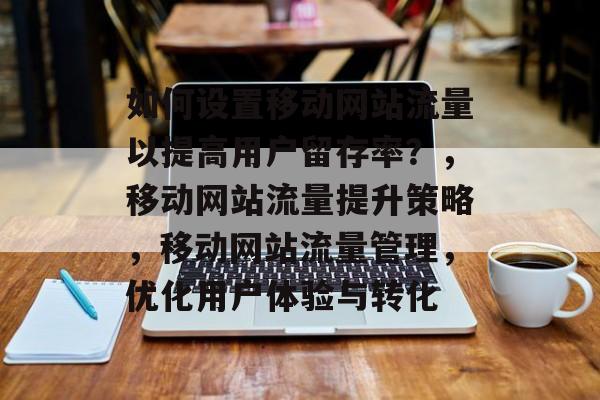 如何设置移动网站流量
以提高用户留存率？，
移动网站流量提升策略
，移动网站流量管理，
优化用户体验与转化